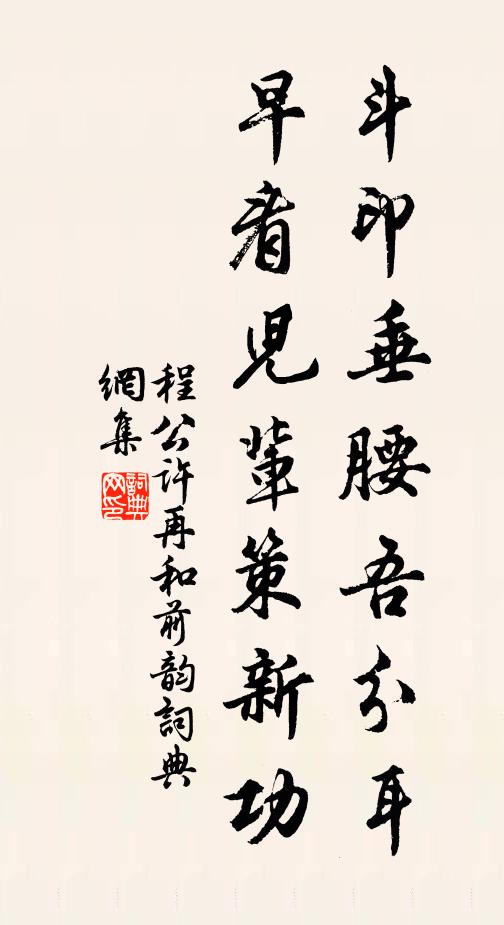 斗印垂腰吾分耳
早看兒輩策新功
程公許再和前韵詞典
網集
詞典網印